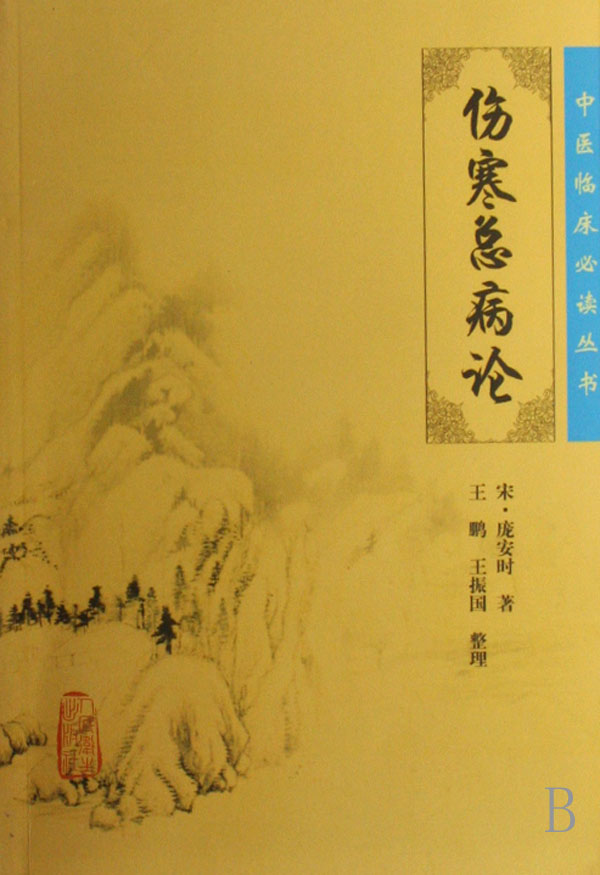 中医临床必读丛书
伤寒总病论
宋·庞安时 著
王 鹏 王振国 整理
B